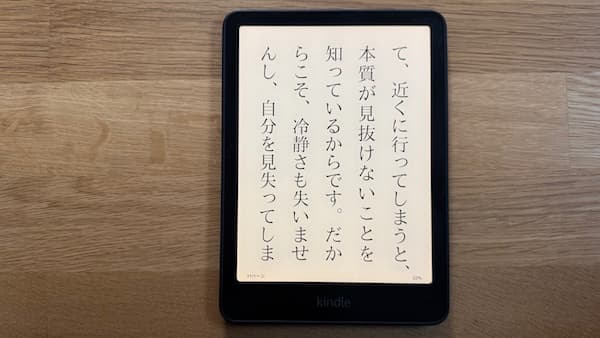 て、近くに行ってしまうと、
本質が見抜けないことを
知っているからです。だか
らこそ、冷静さも失いませ
んし、自分を見失ってしま
22%
kindle